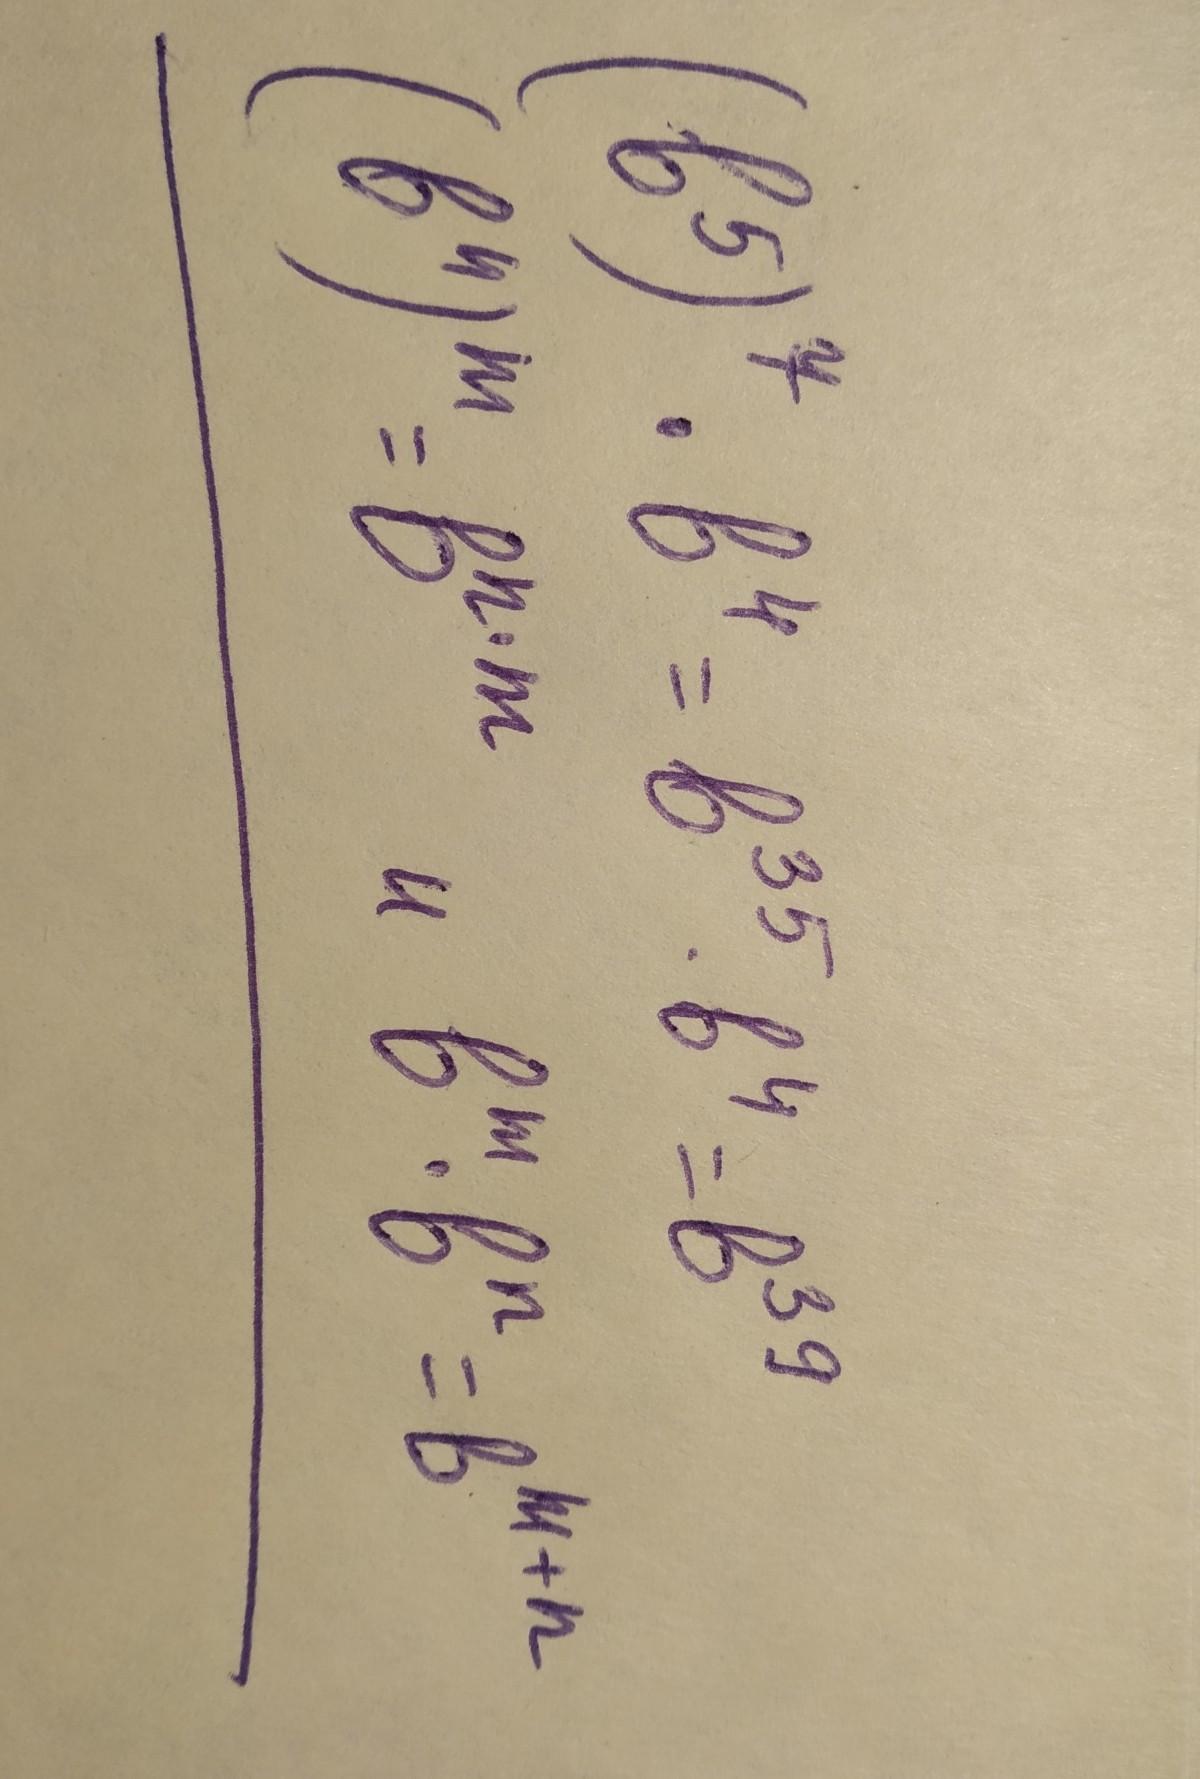 (b⁵)⁷ · b⁴ = b³⁵ · b⁴ = b³⁹
(bⁿ)ᵐ = bⁿ·ᵐ и bᵐ · bⁿ = bᵐ⁺ⁿ